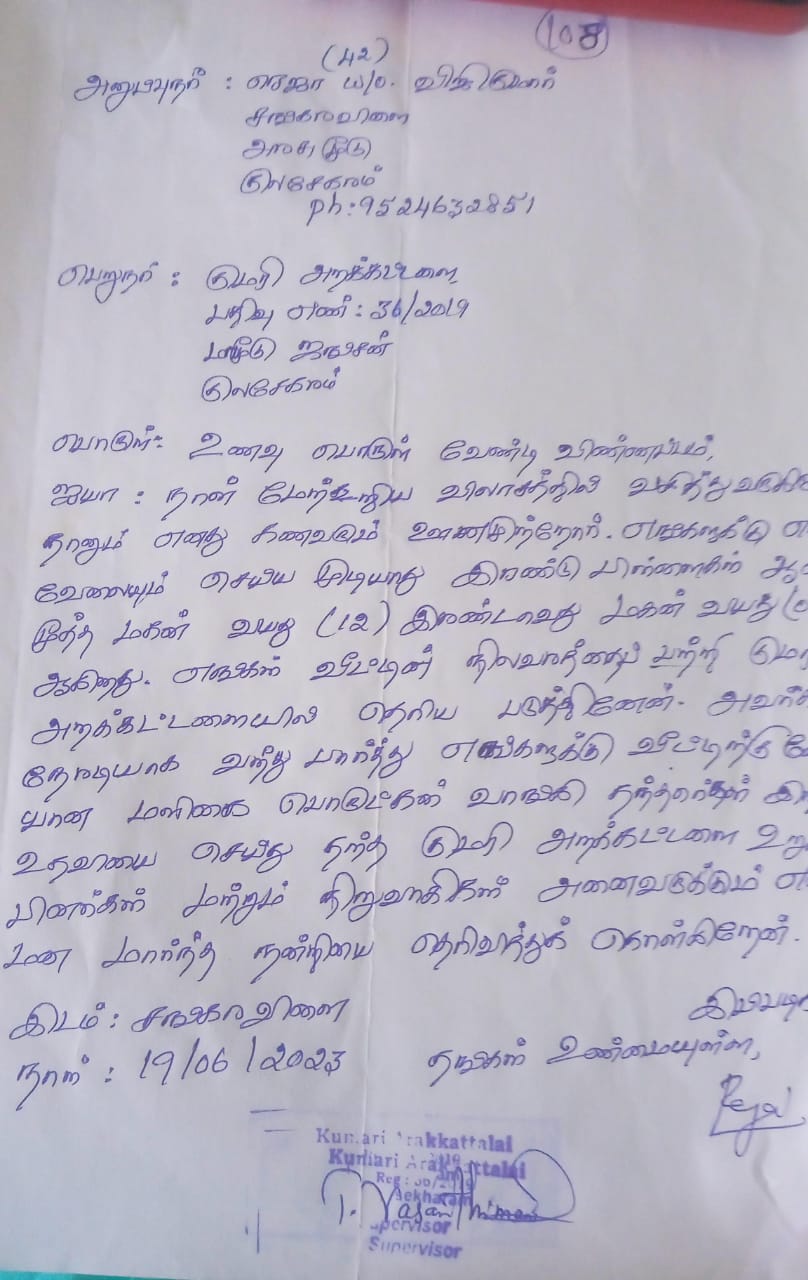 (108)
(42)
அனுப்புநர் : ரெஜா w/o. விஜிகுமார்
சங்கரவிளை
அரசமூடு
குலசேகரம்
ph: 9524632851
பெறுநர் : குமரி அறக்கட்டளை,
பதிவு எண் : 36/2019
மாமூடு ஜங்சன்
குலசேகரம்
பொருள்:- உணவு பொருள் வேண்டி விண்ணப்பம்.
ஐயா : நான் மேற்கூறிய விலாசத்தில் வசித்து
நானும் எனது கணவரும் ஊனமுற்றோர். எங்களுக்கு
வேலையும் செய்ய முடியாது இரண்டு பிள்ளைகள்
மூத்த மகன் வயது (12) இரண்டாவது மகன் வயது
ஆகிறது. எங்கள் வீட்டின் நிலவரத்தைப் பற்றி
அறக்கட்டளையில் தெரிய படுத்தினேன்.
நேரடியாக வந்து பார்த்து எங்களுக்கு வீட்டிற்கு
யான மளிகை பொருட்கள் வாங்கி தந்தார்கள்
உதவியை செய்து தந்த குமரி அறக்கட்டளை
பினர்கள் மற்றும் நிறுவாகிகள் அனைவருக்கும்
மன மார்ந்த நன்றியை தெரிவித்துக் கொள்கிறேன்.
இடம் : சங்கரவிளை
நாள் : 19/06/2023 தங்கள் உண்மையுள்ள,
Reja
Kumari Arakkattalai
Kumari Arakkattalai
Supervisor
Supervisor